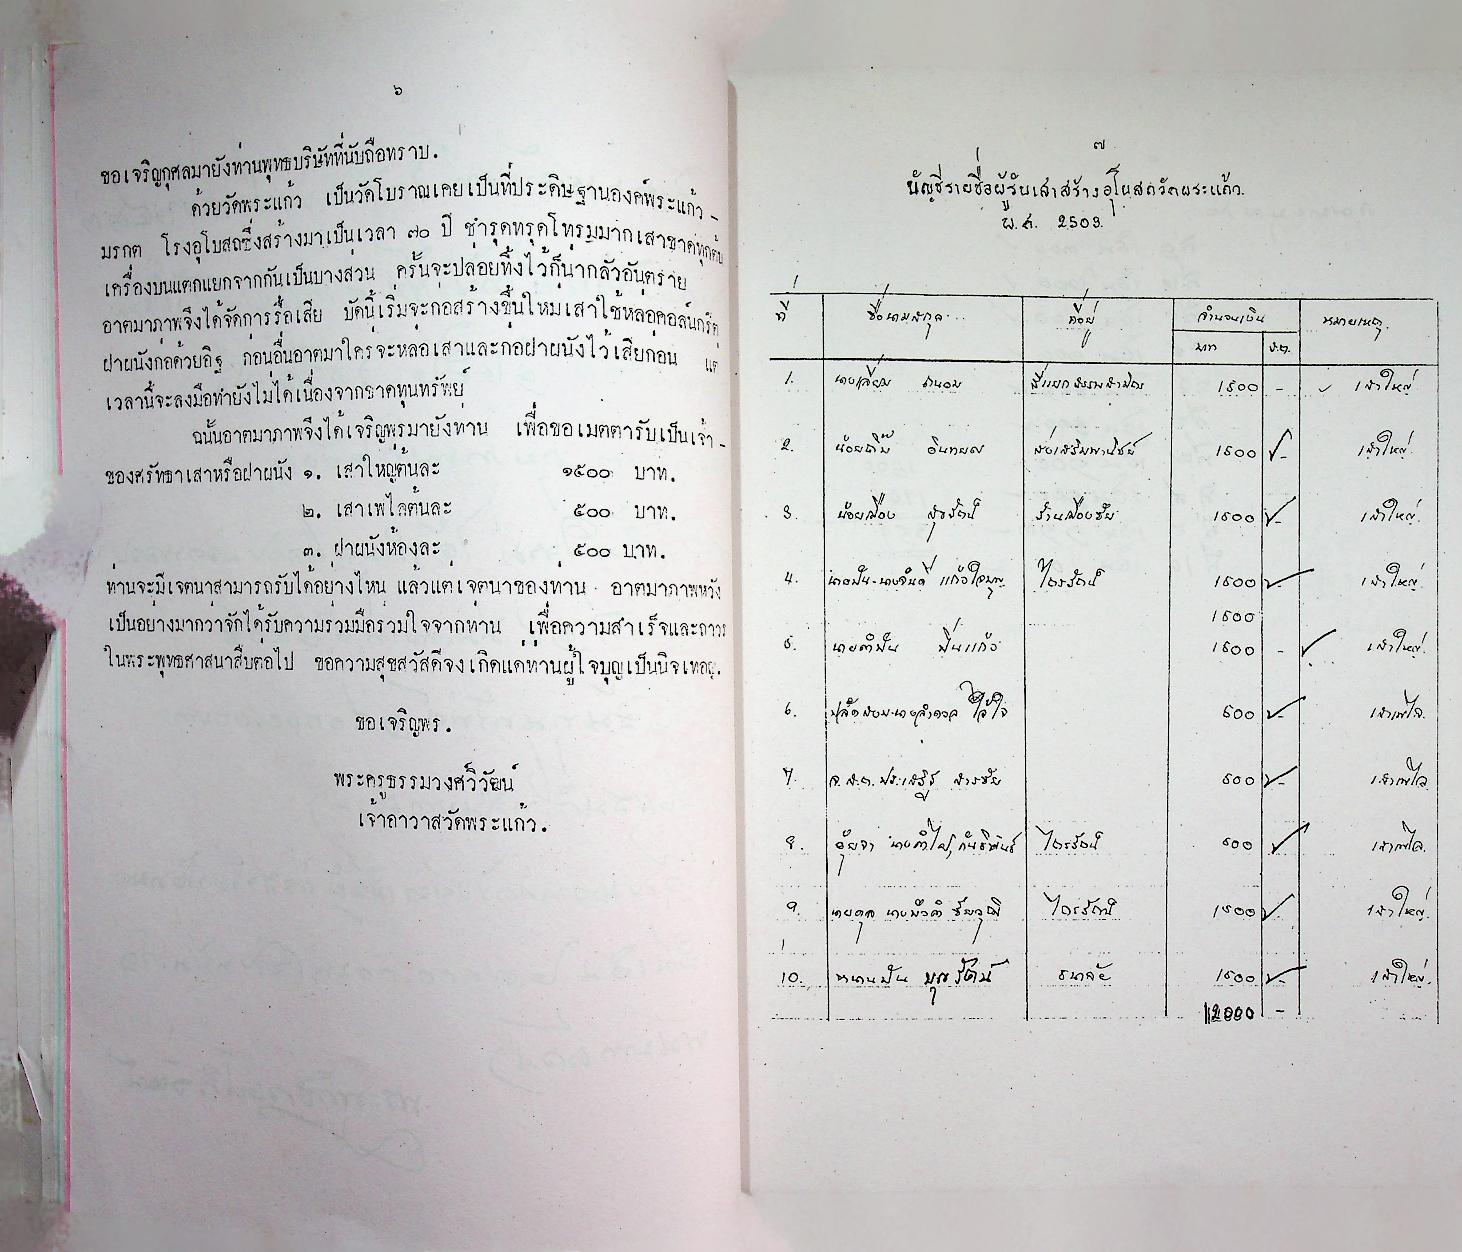 ๖
ขอเจริญกุศลมายังท่านพุทธบริษัทที่นับถือทราบ.
ด้วยวัดพระแก้ว เป็นวัดโบราณเคยเป็นที่ประดิษฐานองค์พระแก้ว -
มรกต โรงอุโบสถซึ่งสร้างมาเป็นเวลา ๗๐ ปี ชำรุดทรุดโทรมมาก เสาขาดทุกต้น
เครื่องบนแตกแยกจากกันเป็นบางส่วน ครั้นจะปล่อยทิ้งไว้ก็น่ากลัวอันตราย
อาตมาภาพจึงได้จัดการรื้อเสีย บัดนี้เริ่มจะก่อสร้างขึ้นใหม่ เสาใช้หล่อคอล์นกรีต
ฝาผนังก่อด้วยอิฐ ก่อนอื่นอาตมาใคร่จะหล่อเสาและก่อฝาผนังไว้เสียก่อน แต่
เวลานี้จะลงมือทำยังไม่ได้เนื่องจากขาดทุนทรัพย์
ฉนั้นอาตมาภาพจึงได้เจริญพรมายังท่าน เพื่อขอเมตตารับเป็นเจ้า -
ของศรัทธาเสาหรือฝาผนัง ๑. เสาใหญ่ต้นละ ๑๕๐๐ บาท.
๒. เสาเฟไลต้นละ ๕๐๐ บาท.
๓. ฝาผนังห้องละ ๕๐๐ บาท.
ท่านจะมีเจตนาสามารถรับได้อย่างไหน แล้วแต่เจตนาของท่าน อาตมาภาพหวัง
เป็นอย่างมากว่าจักได้รับความร่วมมือร่วมใจจากท่าน เพื่อความสำเร็จและถาวร
ในพระพุทธศาสนาสืบต่อไป ขอความสุขสวัสดีจงเกิดแด่ท่านผู้ใจบุญเป็นนิจเทอญ.
ขอเจริญพร.
พระครูธรรมวงศ์วิวัฒน์
เจ้าอาวาสวัดพระแก้ว.
๗
บัญชีรายชื่อผู้รับเสาสร้างอุโบสถวัดพระแก้ว.
พ.ศ. 2503.
ที่ ชื่อนามสกุล ที่อยู่ จำนวนเงิน หมายเหตุ.
บาท ส.ต.
1. นายเลื่อม ถนอม สี่แยก 1500 - เสาใหญ่
2. น้อยตื้บ อินทยศ ส่งเสริมพานิชย์ 1500 - เสาใหญ่.
3. น้อยเมือง สุรรัตน์ ร้านเมืองชัย 1500 - เสาใหญ่.
4. นายปัน-นางจันดี แก้วใจบุญ ไตรรัตน์ 1500 - เสาใหญ่.
1500
5. นายคำปัน ปิ่นแก้ว 1500 - เสาใหญ่.
6. ปลัด 500 - เสาเฟไล.
7. จ.ส.ต. ประเสริฐ สารชัย 500 - เสาเฟไล
8. ไตรรัตน์ 500 - เสาเฟไล.
9. ไตรรัตน์ 1500 เสาใหญ่.
10. หนานปัน บุญรัตน์ ธนาลัย 1500 - เสาใหญ่.
12000 -